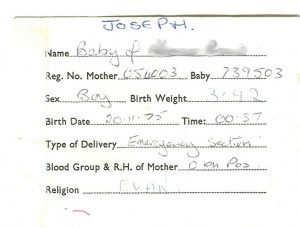 JOSEPH.
Name Baby of
Reg. No. Mother 054003 Baby 739503
Sex Boy Birth Weight 3.42
Birth Date 20.11.75 Time: 00.57
Type of Delivery Emergency Section
Blood Group & R.H. of Mother O on Pos.
Religion